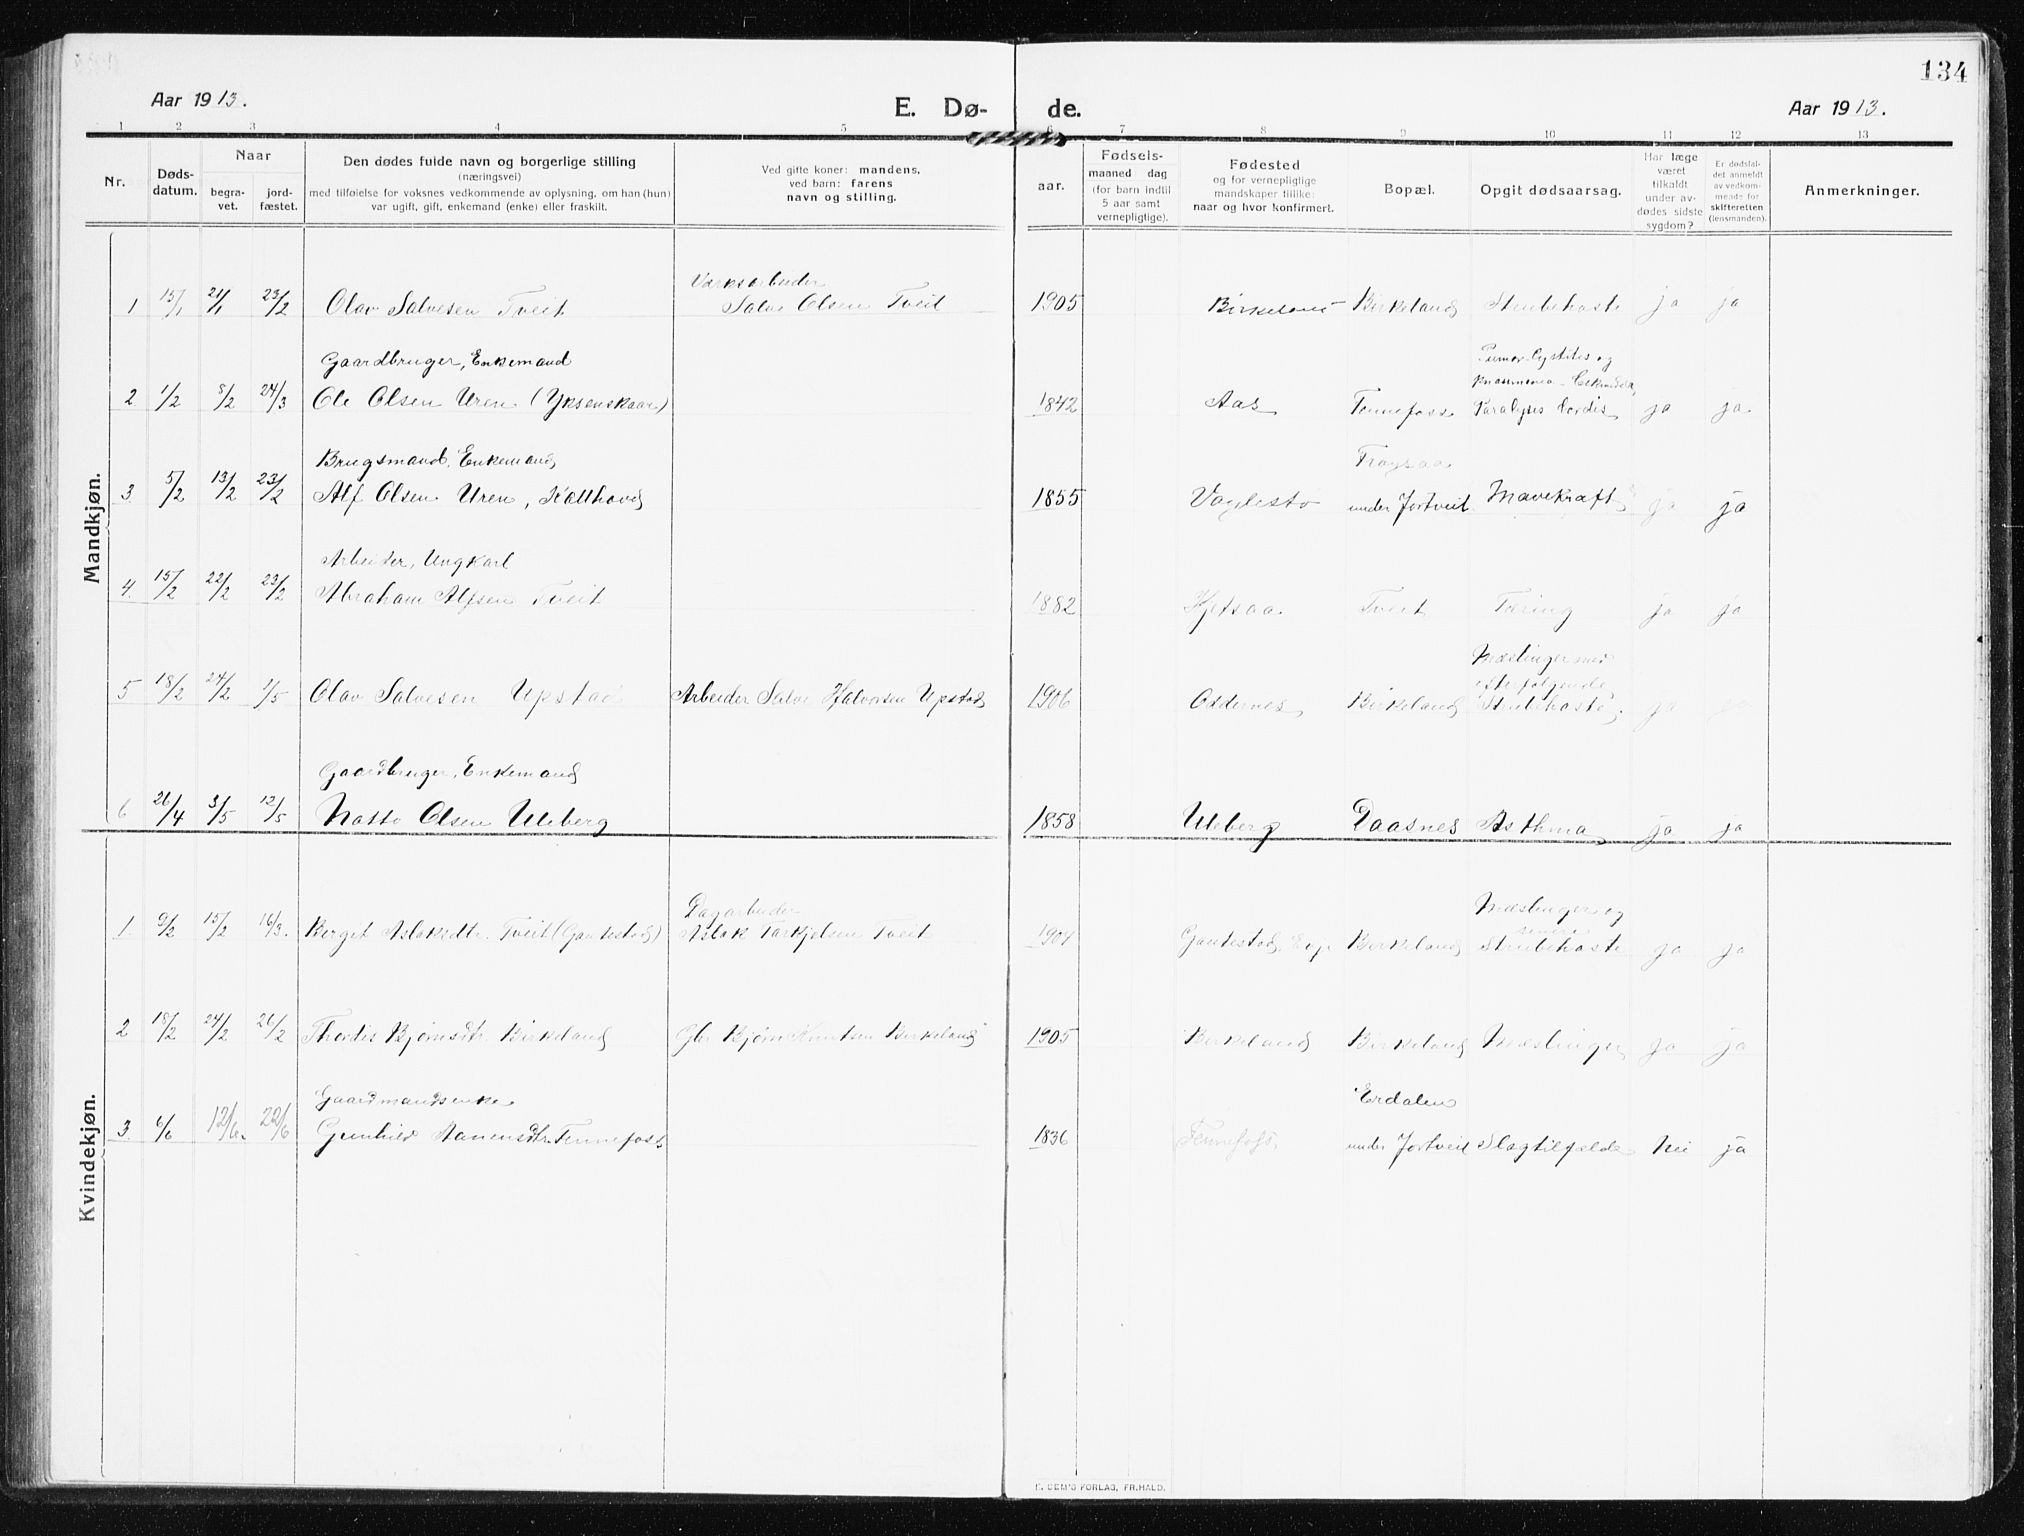 134
Aar 1913.
E. Dø-
de.
Aar 1913.
1 2 3 4 5 6 7 8 9 10 11 12 13
Nr.
Døds-
datum.
Naar
begra-
vet.
jord-
fæstet.
Den dødes fulde navn og borgerlige stilling
(næringsvei)
med tilføielse for voksnes vedkommende av oplysning, om han (hun)
var ugift, gift, enkemand (enke) eller fraskilt.
Ved gifte koner: mandens,
ved barn: farens
navn og stilling.
aar.
Fødsels-
maaned dag
(for barn indtil
5 aar samt
vernepligtige).
Fødested
og for vernepligtige
mandskaper tillike:
naar og hvor konfirmert.
Bopæl.
Opgit dødsaarsag.
Har læge
været
tilkaldt
under av-
dødes sidste
sygdom?
Er dødsfal-
det anmeldt
av vedkom-
mende for
skifteretten
(lensmanden).
Anmerkninger.
Mandkjøn.
Værksarbeider
1 15/1 21/1 23/2 Olav Salvesen Tveit Salve Olsen Tveit 1905 Birkeland Birkeland Strubehoste ja ja
Gaardbruger, Enkemand
Tumor. Cystites og
2 1/2 8/2 24/3 Ole Olsen Uren (Yksenskaar) 1842 Aas Fennefoss Paralyses Cordis ja ja
Brugsmand, Enkemand Frøysaa
3 5/2 13/2 23/2 Alf Olsen Uren, 1855 under Jortveit Mavekræft ja ja
Arbeider, Ungkarl
4. 15/2 22/2 23/2 Abraham Alfsen Tveit 1882 Kjetsaa Tveit Tæring ja ja
Mæslinger med
efterfølgende
5 18/2 24/2 1/5 Olav Salvesen Upstad Arbeider Salve Halvorsen Upstad 1906 Oddernes Birkeland Strubehoste. ja ja
Gaardbruger, Enkemand
6 26/4 3/5 12/5 Olsen Uleberg 1858 Uleberg Daasnes Asthma ja ja
Kvindekjøn.
Dagarbeider Mæslinger og
senere
1. 9/2 15/2 16/3. Berget Aslaksdtr. Tveit (Gautestad) Aslak Tarkjelsen Tveit 1904 Gautestad, Evje Birkeland Strubehoste ja ja
2 18/2 24/2 26/2 Thordis Bjørnsdtr. Birkeland Gbr Bjørn Knutsen Birkeland 1905 Birkeland Birkeland Mæslinger ja ja
Gaardmandsenke Erdalen
3. 6/6 12/6. 22/6 Gunhild Aanensdtr. Fennefoss 1836 Fennefoss under Jortveit Slagtilfælde Nei ja
E. SEM'S FORLAG, FR.HALD.